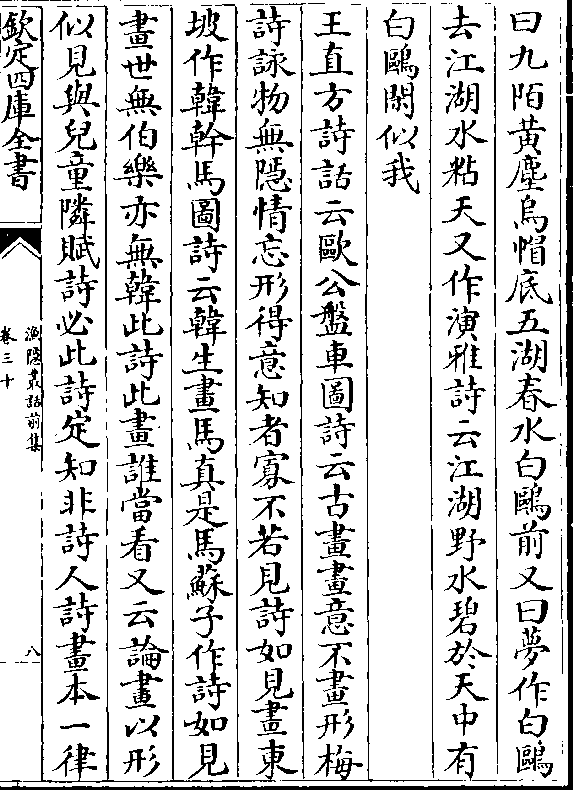 曰九陌黃塵烏帽底五湖春水白鷗前又曰夢作白鷗
去江湖水粘天又作演雅詩云江湖野水碧於天中有
白鷗閑似我
王直方詩話云歐公盤車圖詩云古畫畫意不畫形梅
詩詠物無隱情忘形得意知者寡不若見詩如見畫東
坡作韓幹馬圖詩云韓生畫馬真是馬蘇子作詩如見
畫世無伯樂亦無韓此詩此畫誰當看又云論畫以形
似見與兒童隣賦詩必此詩定知非詩人詩畫本一律
欽定四庫全書
漁隱叢話前集
卷三十
八